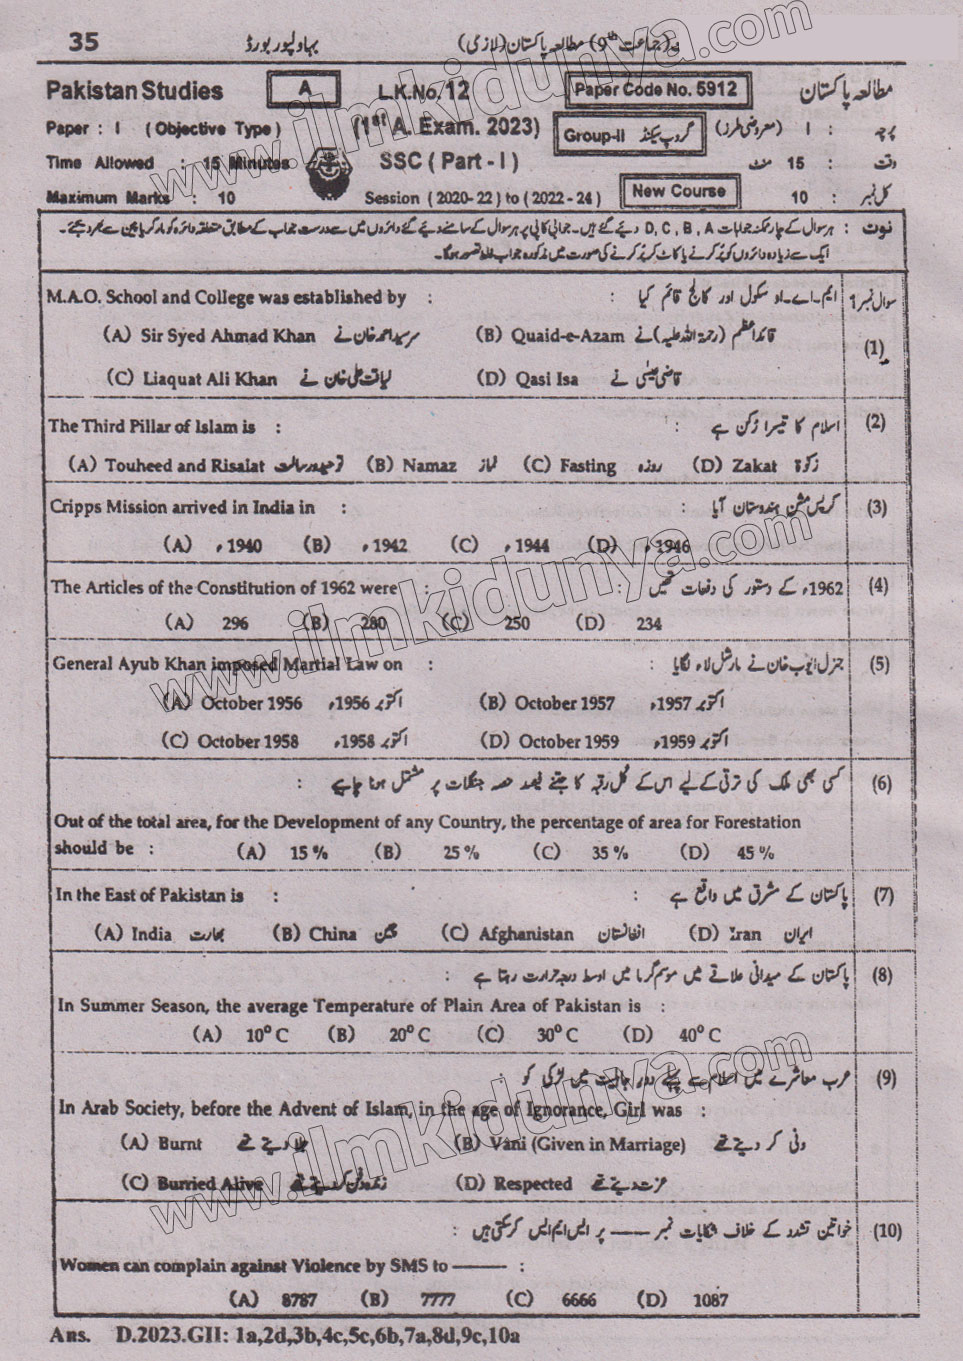 35 بہاولپور بورڈ (جماعت 9th) مطالعہ پاکستان (لازمی)
Pakistan Studies A L.K.No. 12 Paper Code No. 5912 مطالعہ پاکستان
Paper : I ( Objective Type ) (1st A. Exam. 2023) Group-II گروپ سیکنڈ پرچہ : I (معروضی طرز)
Time Allowed : 15 Minutes SSC ( Part - I ) وقت : 15 منٹ
Maximum Marks : 10 Session ( 2020- 22 ) to ( 2022 - 24 ) New Course کل نمبر : 10
نوٹ : ہر سوال کے چار ممکنہ جوابات D , C , B , A دیے گئے ہیں۔ جوابی کاپی پر ہر سوال کے سامنے دیے گئے دائروں میں سے درست جواب کے مطابق متعلقہ دائرہ کو مارکر یا پین سے بھر دیجئے۔
ایک سے زیادہ دائروں کو پُر کرنے یا کاٹ کر پُر کرنے کی صورت میں مذکورہ جواب غلط تصور ہوگا۔
M.A.O. School and College was established by : ایم۔اے۔او سکول اور کالج قائم کیا : سوال نمبر 1
(A) Sir Syed Ahmad Khan سر سید احمد خان نے (B) Quaid-e-Azam قائداعظم (رحمۃ اللہ علیہ) نے (1)
(C) Liaquat Ali Khan لیاقت علی خان نے (D) Qasi Isa قاضی عیسیٰ نے
The Third Pillar of Islam is : اسلام کا تیسرا رُکن ہے : (2)
(A) Touheed and Risalat توحید و رسالت (B) Namaz نماز (C) Fasting روزہ (D) Zakat زکوٰۃ
Cripps Mission arrived in India in : کرپس مشن ہندوستان آیا : (3)
(A) 1940ء (B) 1942ء (C) 1944ء (D) 1946ء
The Articles of the Constitution of 1962 were : 1962ء کے دستور کی دفعات تھیں : (4)
(A) 296 (B) 280 (C) 250 (D) 234
General Ayub Khan imposed Martial Law on : جنرل ایوب خان نے مارشل لاء لگایا : (5)
(A) October 1956 اکتوبر 1956ء (B) October 1957 اکتوبر 1957ء
(C) October 1958 اکتوبر 1958ء (D) October 1959 اکتوبر 1959ء
کسی بھی ملک کی ترقی کے لیے اس کے کُل رقبہ کا جتنے فیصد حصہ جنگلات پر مشتمل ہونا چاہیے : (6)
Out of the total area, for the Development of any Country, the percentage of area for Forestation
should be : (A) 15 % (B) 25 % (C) 35 % (D) 45 %
In the East of Pakistan is : پاکستان کے مشرق میں واقع ہے : (7)
(A) India بھارت (B) China چین (C) Afghanistan افغانستان (D) Iran ایران
پاکستان کے میدانی علاقے میں موسم گرما میں اوسط درجہ حرارت رہتا ہے : (8)
In Summer Season, the average Temperature of Plain Area of Pakistan is :
(A) 10⁰ C (B) 20⁰ C (C) 30⁰ C (D) 40⁰ C
عرب معاشرے میں اسلام سے پہلے دور جاہلیت میں لڑکی کو : (9)
In Arab Society, before the Advent of Islam, in the age of Ignorance, Girl was :
(A) Burnt جلا دیتے تھے (B) Vani (Given in Marriage) ونی کر دیتے تھے
(C) Burried Alive زندہ دفن کر دیتے تھے (D) Respected عزت دیتے تھے
خواتین تشدد کے خلاف شکایات نمبر ——— پر ایس ایم ایس کر سکتی ہیں : (10)
Women can complain against Violence by SMS to ——— :
(A) 8787 (B) 7777 (C) 6666 (D) 1087
Ans. D.2023.GII: 1a,2d,3b,4c,5c,6b,7a,8d,9c,10a
www.ilmkidunya.com
www.ilmkidunya.com
www.ilmkidunya.com